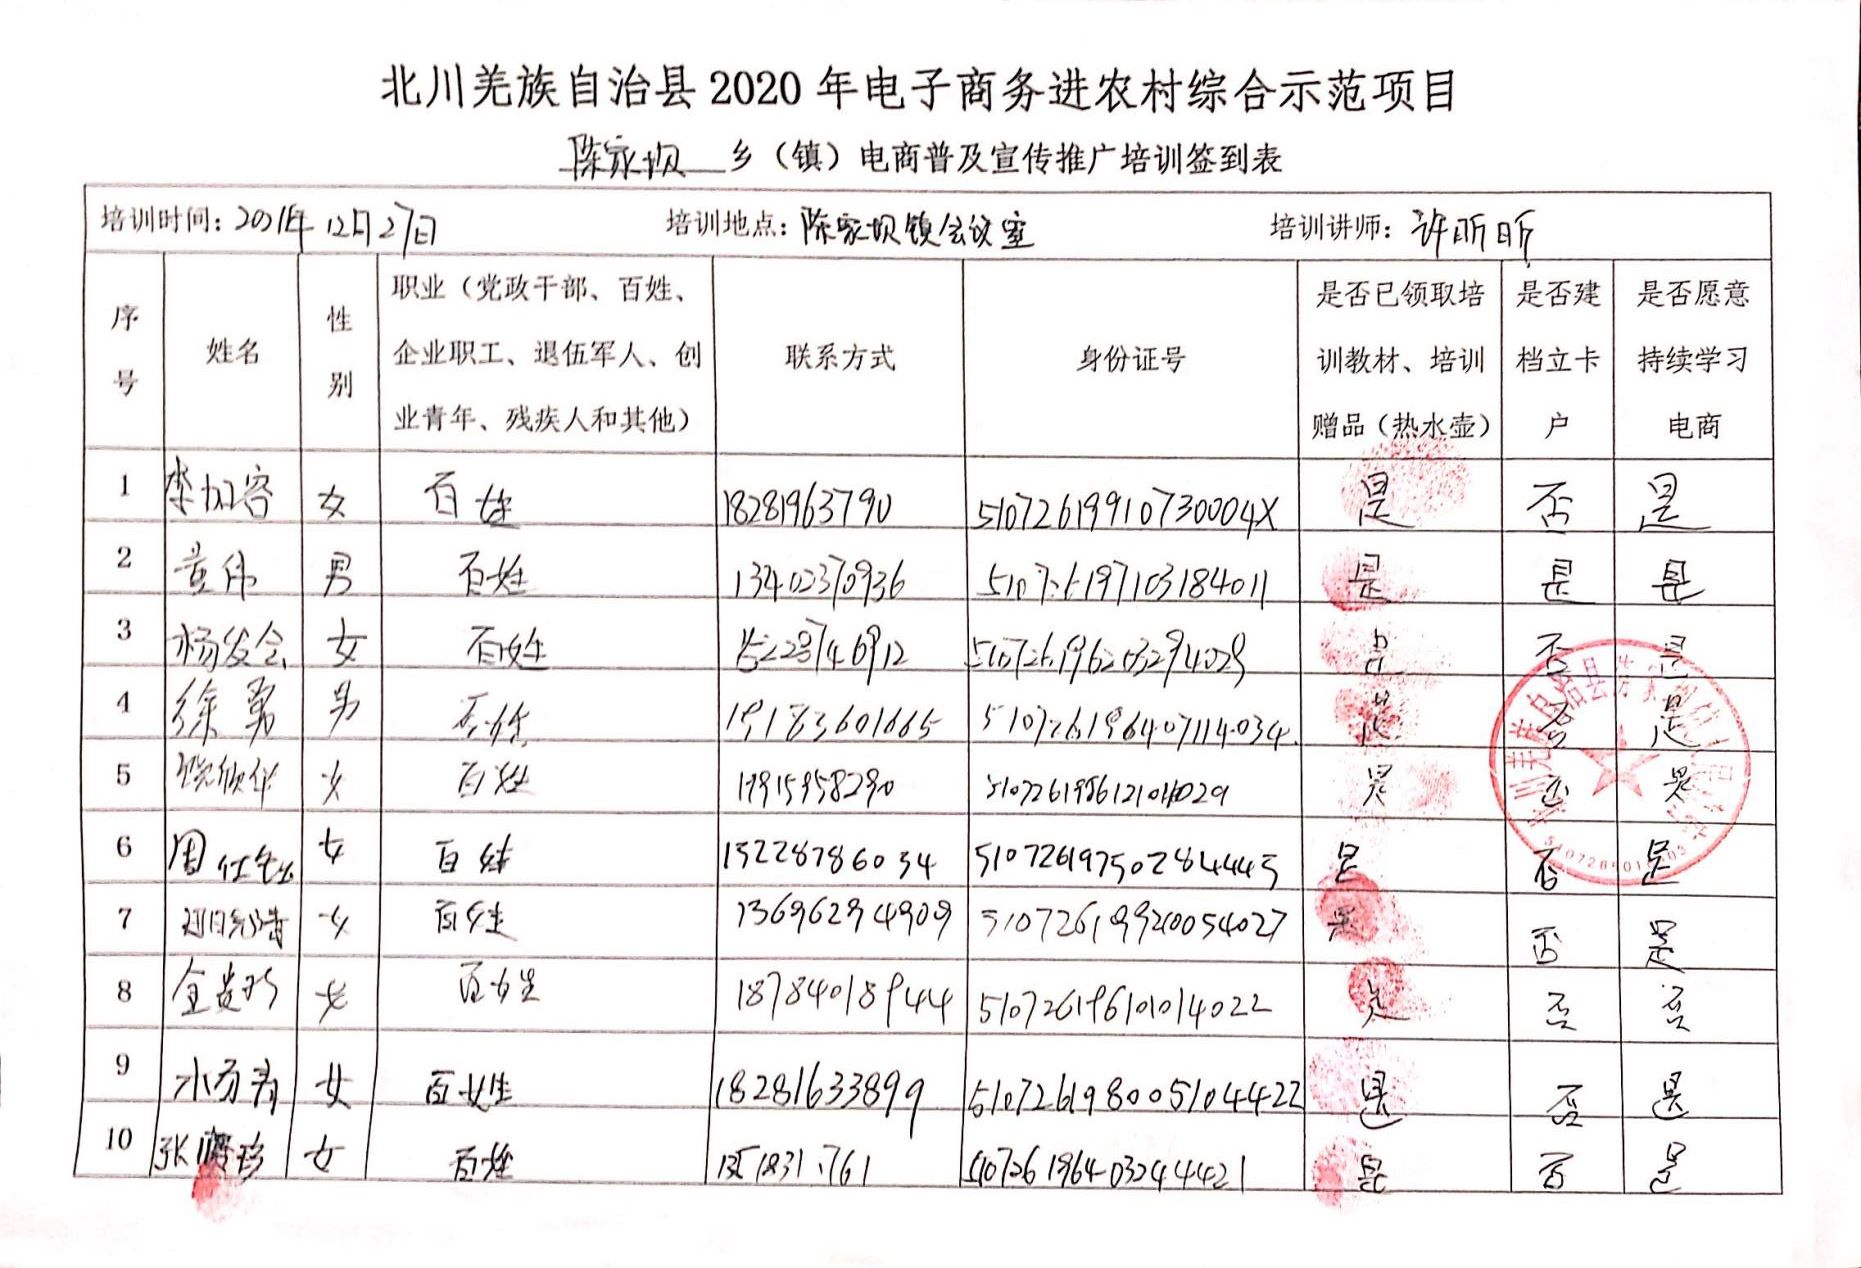 北川羌族自治县2020年电子商务进农村综合示范项目
陈家坝 乡（镇）电商普及宣传推广培训签到表
培训时间：2021年12月27日 培训地点：陈家坝镇会议室 培训讲师：许昕昕
序号 姓名 性别 职业（党政干部、百姓、企业职工、退伍军人、创业青年、残疾人和其他） 联系方式 身份证号 是否已领取培训教材、培训赠品（热水壶） 是否建档立卡户 是否愿意持续学习电商
1 李加容 女 百姓 18281963790 51072619910730004X 是 否 是
2 黄伟 男 百姓 13402370936 是 是 是
3 杨发会 女 百姓 15228746912 510726196203294029 是 否 是
4 徐勇 男 百姓 510726196407114034 是 否 是
5 女 百姓 是 否 是
6 女 百姓 15228786034 510726197502844445 是 否 是
7 女 百姓 13696294909 51072619920054027 是 否 是
8 女 百姓 18784018944 510726196101014022 是 否 否
9 女 百姓 18281633899 510726198005104422 是 否 是
10 张 珍 女 百姓 510726196403244421 是 否 是